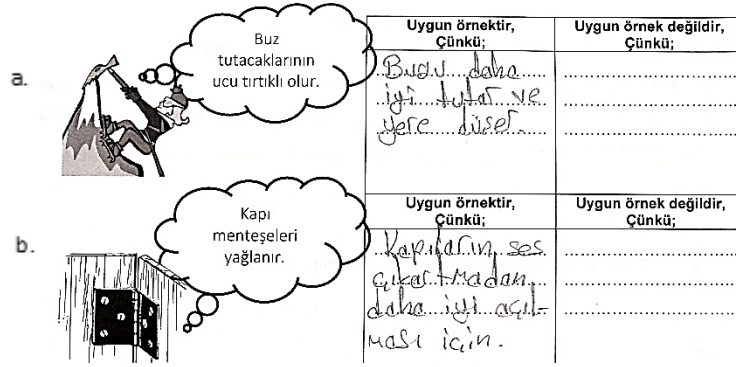 a.
Buz
tutacaklarının
ucu tırtıklı olur.
Uygun örnektir,
Çünkü;
Uygun örnek değildir,
Çünkü;
Buzu daha
iyi tutar ve
yere düşer.
b.
Kapı
menteşeleri
yağlanır.
Uygun örnektir,
Çünkü;
Uygun örnek değildir,
Çünkü;
Kapıların ses
çıkartmadan
daha iyi açıl-
ması için.